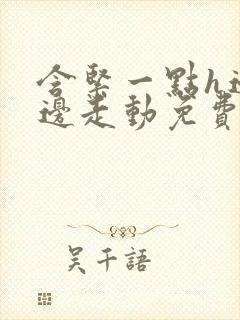 含緊一點h邊
邊走動免費
吴千語